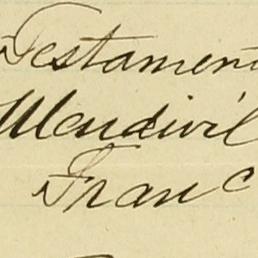 Testamen
Mendivil
Franc